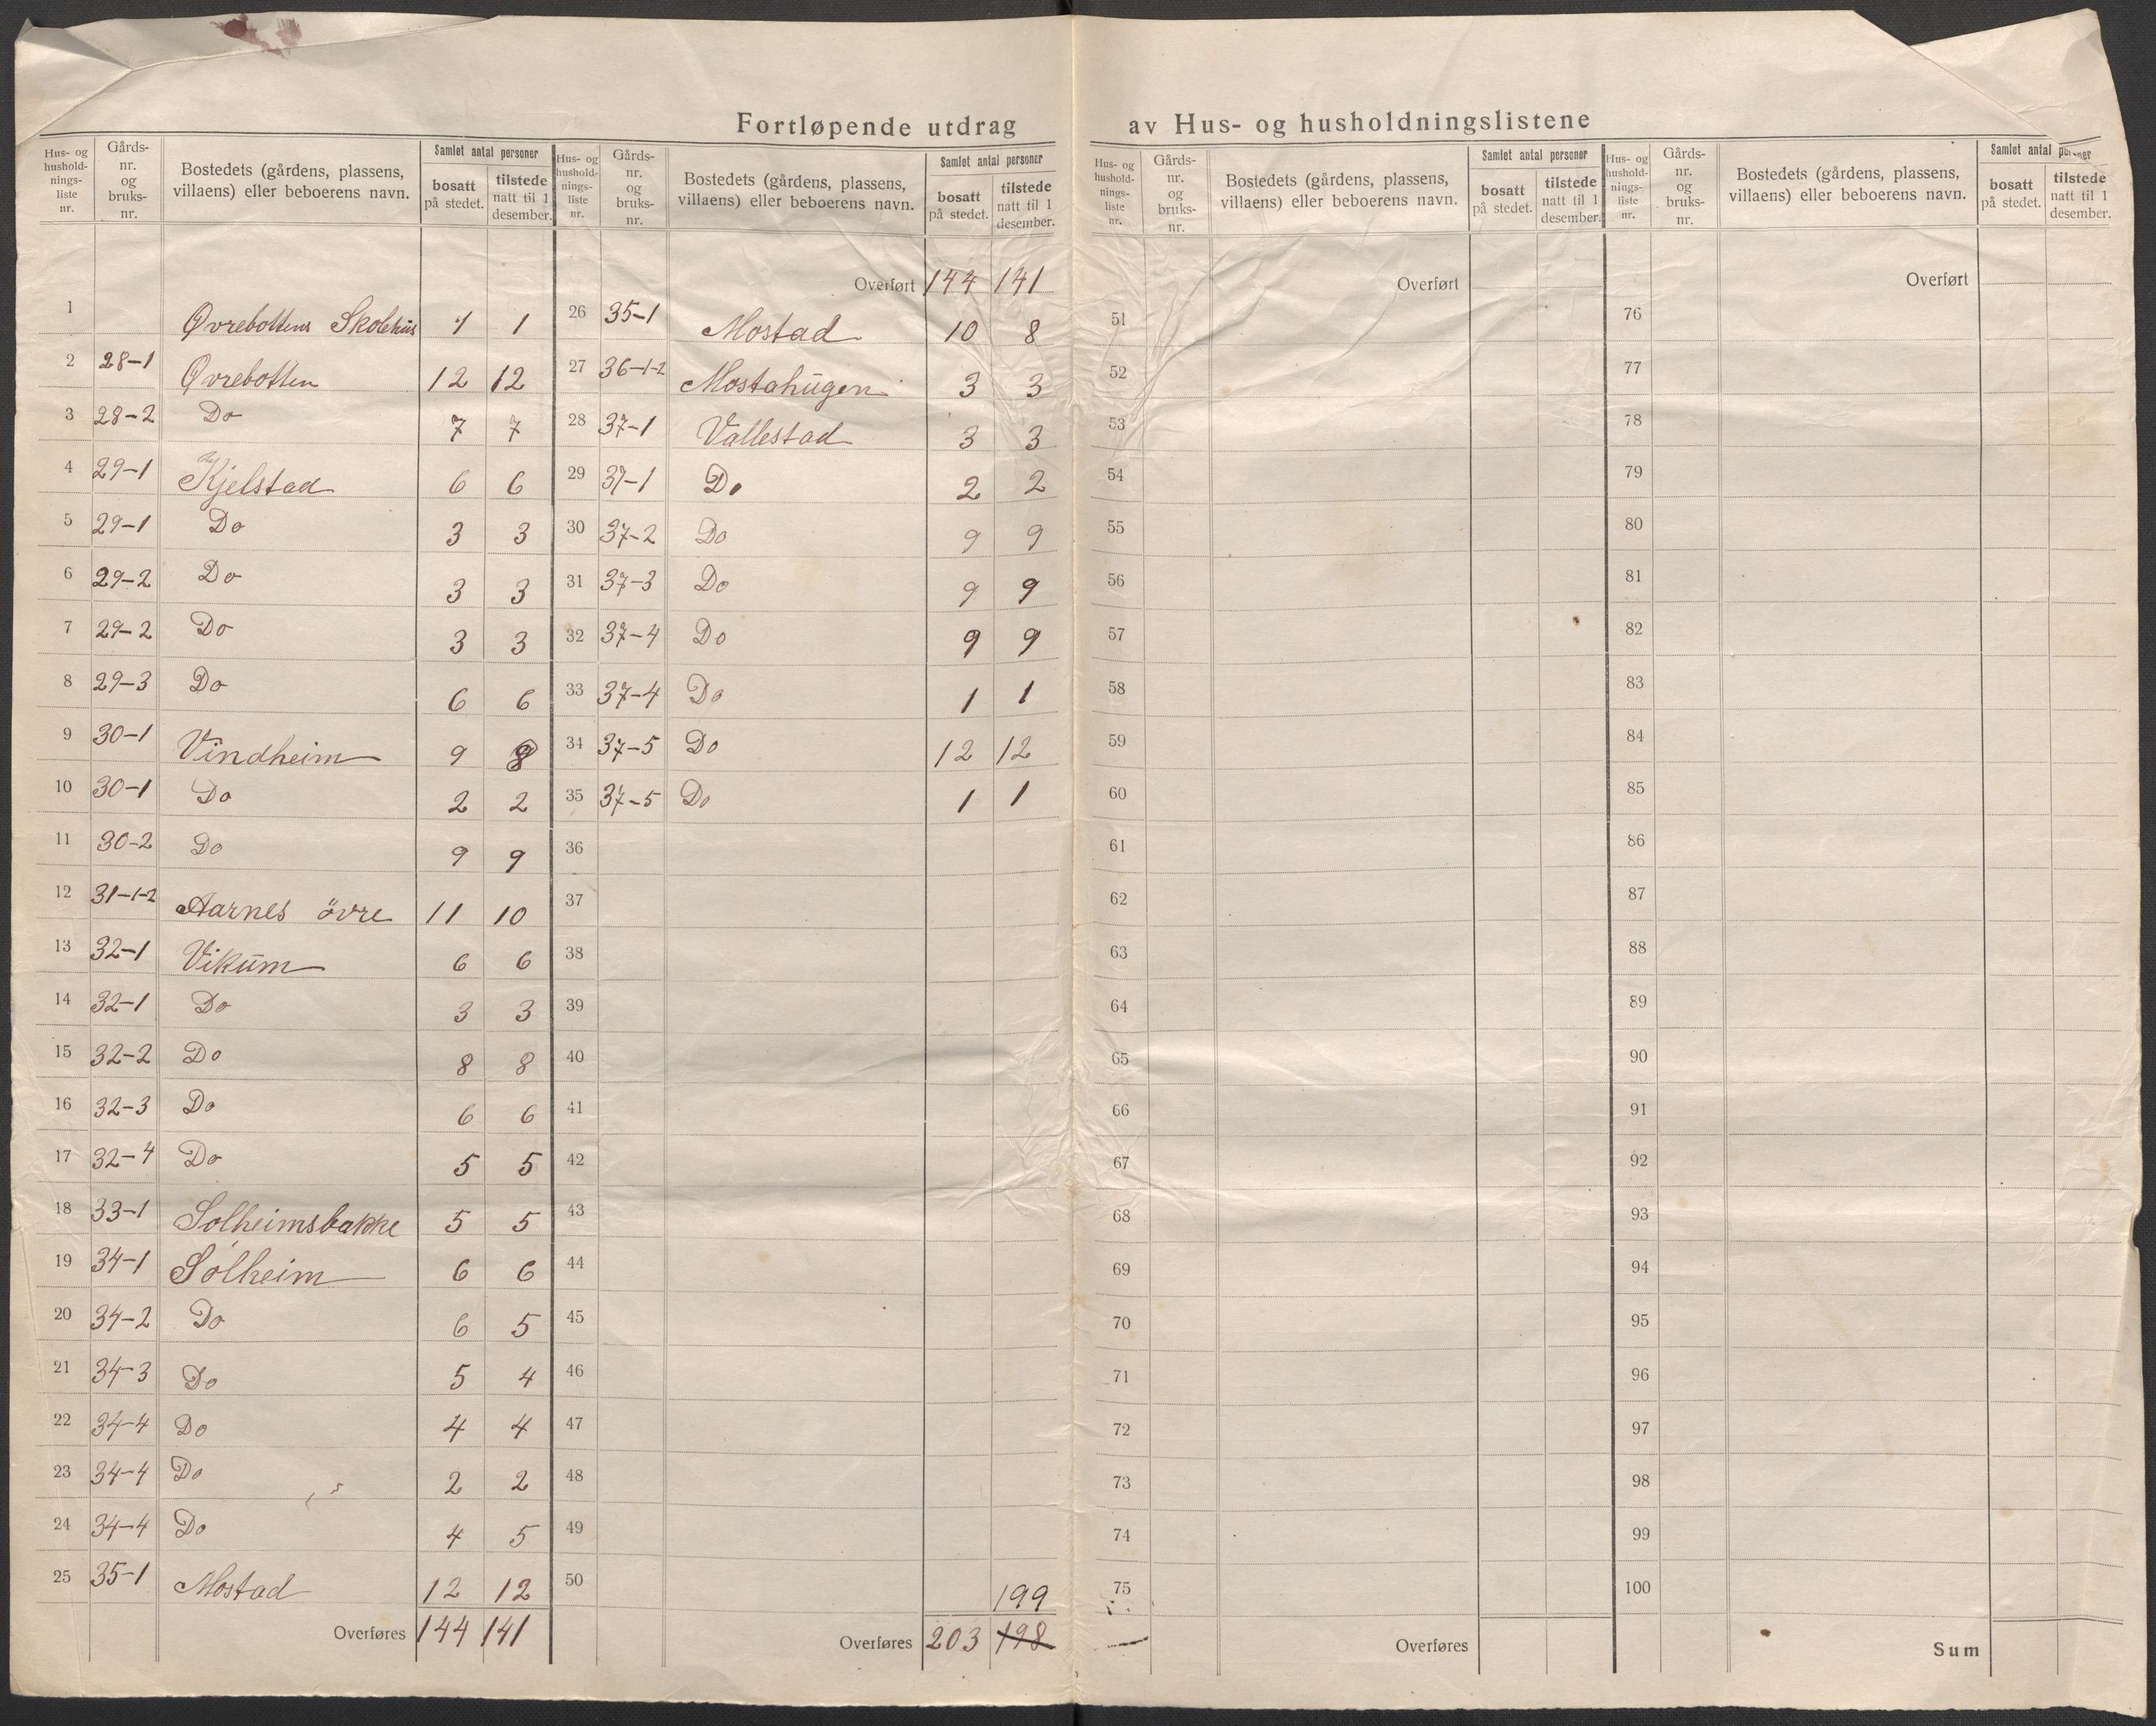 Fortløpende utdrag av Hus- og husholdningslistene
Hus- og hushold-nings-liste nr. Gårds-nr. og bruks-nr. Bostedets (gårdens, plassens, villaens) eller beboerens navn. Samlet antal personer bosatt på stedet. tilstede natt til 1 desember.
1 Øvrebottens Skolehus 1 1
2 28-1 Øvrebotten 12 12
3 28-2 Do 7 7
4 29-1 Kjelstad 6 6
5 29-1 Do 3 3
6 29-2 Do 3 3
7 29-2 Do 3 3
8 29-3 Do 6 6
9 30-1 Vindheim 9 8
10 30-1 Do 2 2
11 30-2 Do 9 9
12 31-1-2 Aarnes övre 11 10
13 32-1 Vikum 6 6
14 32-1 Do 3 3
15 32-2 Do 8 8
16 32-3 Do 6 6
17 32-4 Do 5 5
18 33-1 Solheimsbakke 5 5
19 34-1 Solheim 6 6
20 34-2 Do 6 5
21 34-3 Do 5 4
22 34-4 Do 4 4
23 34-4 Do 2 2
24 34-4 Do 4 5
25 35-1 Mostad 12 12
Overføres 144 141
Hus- og hushold-nings-liste nr. Gårds-nr. og bruks-nr. Bostedets (gårdens, plassens, villaens) eller beboerens navn. Samlet antal personer bosatt på stedet. tilstede natt til 1 desember.
Overført 144 141
26 35-1 Mostad 10 8
27 36-1-2 Mostahugen 3 3
28 37-1 Vallestad 3 3
29 37-1 Do 2 2
30 37-2 Do 9 9
31 37-3 Do 9 9
32 37-4 Do 9 9
33 37-4 Do 1 1
34 37-5 Do 12 12
35 37-5 Do 1 1
36
37
38
39
40
41
42
43
44
45
46
47
48
49
50
199
Overføres 203 198
Hus- og hushold-nings-liste nr. Gårds-nr. og bruks-nr. Bostedets (gårdens, plassens, villaens) eller beboerens navn. Samlet antal personer bosatt på stedet. tilstede natt til 1 desember.
Overført
51
52
53
54
55
56
57
58
59
60
61
62
63
64
65
66
67
68
69
70
71
72
73
74
75
Overføres
Hus- og hushold-nings-liste nr. Gårds-nr. og bruks-nr. Bostedets (gårdens, plassens, villaens) eller beboerens navn. Samlet antal personer bosatt på stedet. tilstede natt til 1 desember.
Overført
76
77
78
79
80
81
82
83
84
85
86
87
88
89
90
91
92
93
94
95
96
97
98
99
100
Sum